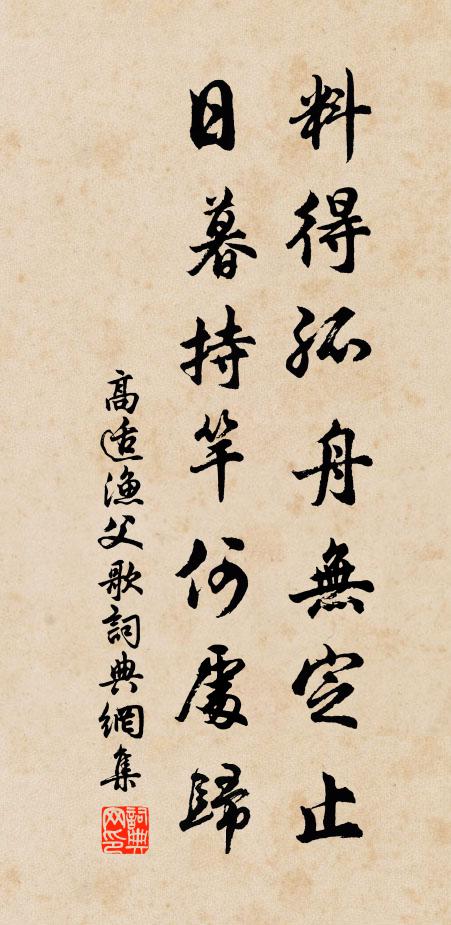 料得孤舟無定止
日暮持竿何處歸
高適漁父歌詞典網集
詞典
网印